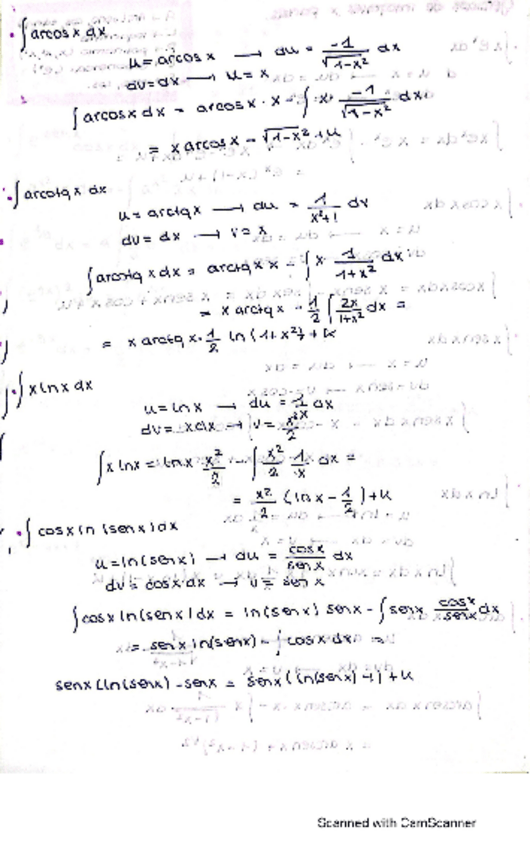 ∫arcosx dx
u = arcosx → du = -1/√(1-x²) dx
dv = dx → u = x
∫arcosx dx = arcosx · x - ∫x · -1/√(1-x²) dx
= x arcosx - √(1-x²) + k
∫arcotg x dx
u = arctg x → du = 1/(x²+1) dv
dv = dx → v = x
∫arcotg x dx = arctg x x - ∫x · 1/(1+x²) dx
= x arctg x - 1/2 ∫ 2x/(1+x²) dx =
= x arctg x · 1/2 ln(1+x²) + k
∫x ln x dx
u = ln x → du = 1/x dx
dv = x dx → v = x²/2
∫x ln x = ln x · x²/2 - ∫ x²/2 · 1/x dx =
= x²/2 (ln x - 1/2) + k
∫cosx ln (senx) dx
u = ln(senx) → du = cosx/senx dx
dv = cosx dx → v = sen x
∫cosx ln(senx) dx = ln(senx) senx - ∫senx cosx/senx dx
= senx ln(senx) - ∫cosx dx =
senx (ln(senx) - senx = senx (ln(senx) - 1) + k
Scanned with CamScanner